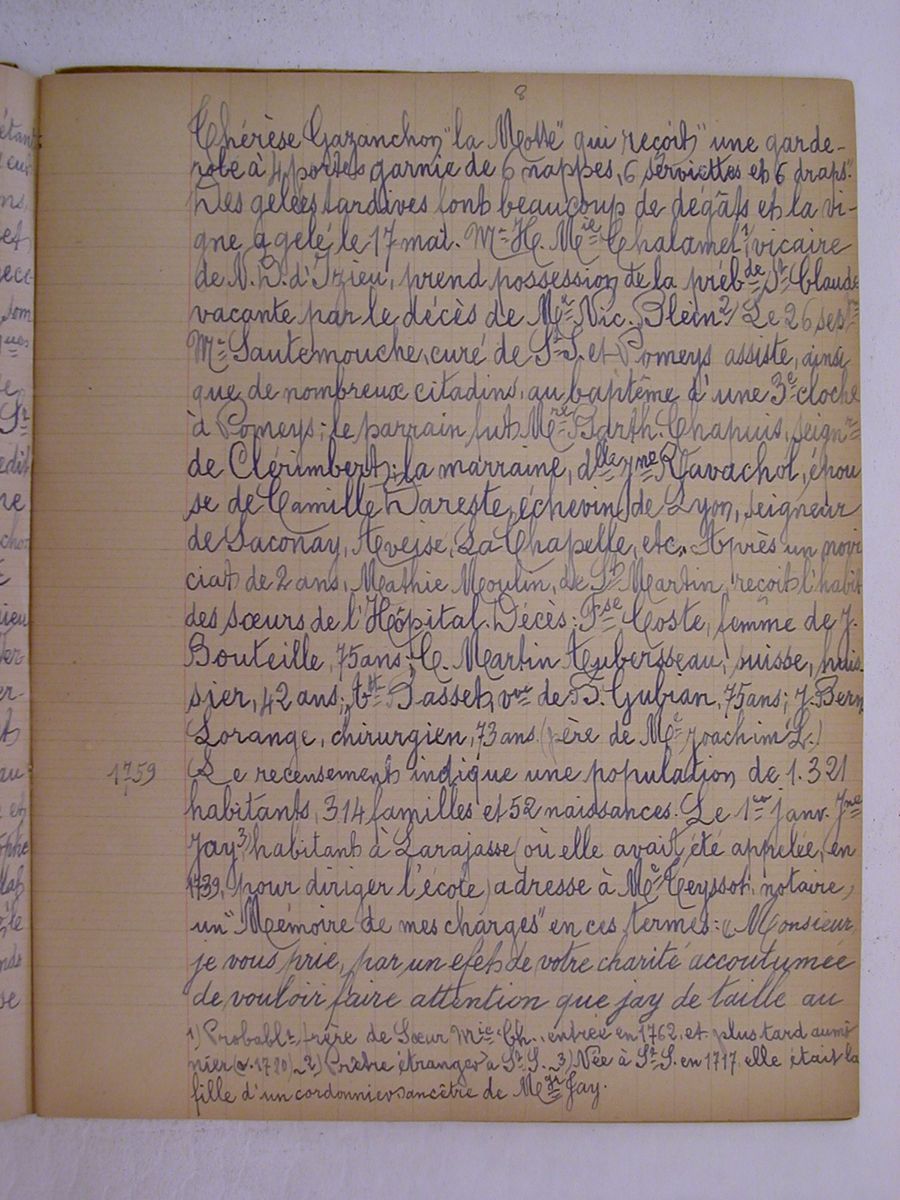 8
Thérèse Garanchon "la Motte" qui reçoit "une garde-
robe à 4 portes garnie de 6 nappes, 6 serviettes et 6 draps".
Des gelées tardives font beaucoup de dégâts et la vi-
gne a gelé le 17 mai. Mr H. Mie Chalamel 1) vicaire
de N.D. d'Izieu, prend possession de la prébde St Claude
vacante par le décès de Mr Nic. Blein 2) Le 26 sepbre
Mr Sautemouche, curé de St S. et Pomeys assiste, ainsi
que de nombreux citadins, au baptême d'une 3e cloche
à Pomeys; le parrain fut Mre Barth. Chapuis, seignr
de Clérimbert; la marraine, dlle Jne Ravachol, épou
se de Camille Dareste, échevin de Lyon, seigneur
de Saconay, Aveise, La Chapelle, etc. Après un novi
ciat de 2 ans, Mathie Moulin, de St Martin, reçoit l'habit
des sœurs de l'Hôpital. Décès: Fse Coste, femme de J.
Bouteille, 75 ans; C. Martin Aubersseau, suisse, huis
sier, 42 ans; Ett Basset, vve de B. Gubian, 75 ans; J. Bern
Lorange, chirurgien, 73 ans (père de Me Joachim L.)
1759 Le recensement indique une population de 1.321
habitants, 314 familles et 52 naissances. Le 1er janv. Jne
Jay 3) habitant à Larajasse (où elle avait été appelée, en
1739, pour diriger l'école) adresse à Me Teyssot, notaire,
un "Mémoire de mes charges" en ces termes: « Monsieur,
je vous prie, par un efet de votre charité accoutumée
de vouloir faire attention que jay de taille au
1) Probablt frère de Sœur Mie Ch., entrée en 1762, et plus tard aumô
nier (v. 1780) 2) Prêtre étranger à St S. 3) Née à St S. en 1717, elle était la
fille d'un cordonnier ancêtre de Mgr Jay.